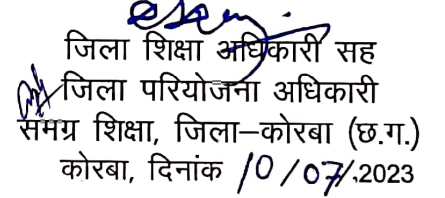 जिला शिक्षा अधिकारी सह
जिला परियोजना अधिकारी
समग्र शिक्षा, जिला–कोरबा (छ.ग.)
कोरबा, दिनांक 10/07/.2023